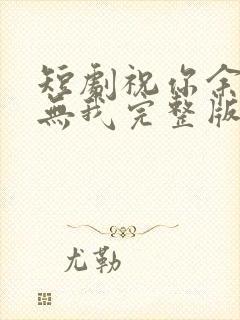 短劇祝你余
無我完整版
尤勒